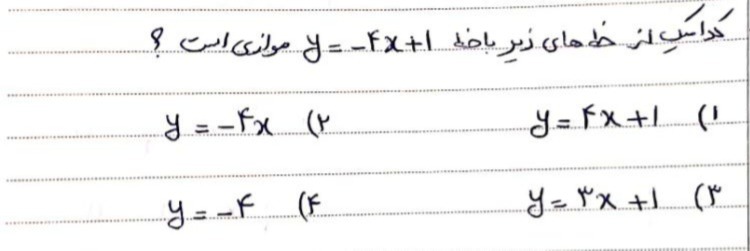 کدامیک از خط های زیر با خط y = -۴x+۱ موازی است ؟
۱) y = ۴x +۱ ۲) y = -۴x
۳) y = ۳x +۱ ۴) y = -۴